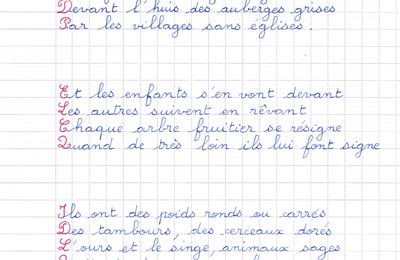 Devant l'huis des auberges grises
Par les villages sans églises.
Et les enfants s'en vont devant
Les autres suivent en rêvant
Chaque arbre fruitier se résigne
Quand de très loin ils lui font signe
Ils ont des poids ronds ou carrés
Des tambours, des cerceaux dorés
L'ours et le singe, animaux sages